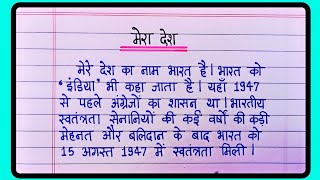 मेरा देश
मेरे देश का नाम भारत है। भारत को
"इंडिया" भी कहा जाता है। यहाँ 1947
से पहले अंग्रेजों का शासन था। भारतीय
स्वतंत्रता सेनानियों की कई वर्षो की कड़ी
मेहनत और बलिदान के बाद भारत को
15 अगस्त 1947 में स्वतंत्रता मिली।